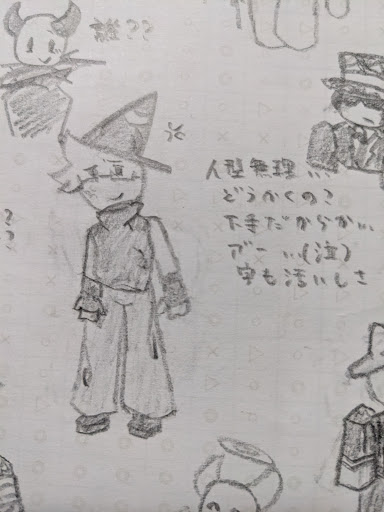 誰??
人型無理...
どうかくの?
下手だからかい...
ボー...(泣)
字も活いしさ
??